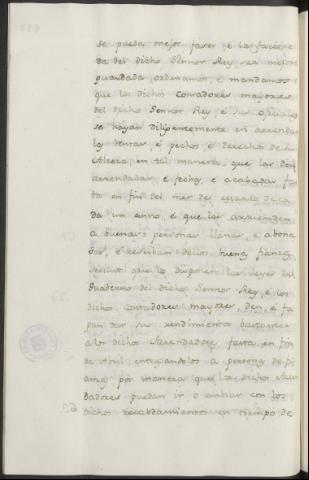 se pueda mejor faser, é la facien
da del dicho Sennor Rey, sea mejor
guardada, ordenamos, é mandamos
que los dichos contadores mayores
del dicho Sennor Rey é sus oficiales
se hayan diligentemente en arrendar
las rentas, é pechos, é derechos de su
Alteza, en tal manera, que las den
arrendadas, é fechas, é acabadas fas
ta en fin del mes de de ca
da un anno, é que las arrienden
a buenas personas llanas, é abona
das, é resciban dellos buenas fianzas,
segunt que lo disponen las leyes del
Quaderno del dicho Sennor Rey, é los
dichos contadores mayores, den, é fa
gan dar sus rendimientos bastantes
a los dichos Arrendadores fasta en fin
de Abril, entregandolos a personas de
por manera que los dichos Arren
dadores puedan ir, o embiar con los
dichos recabdamientos en tiempo de